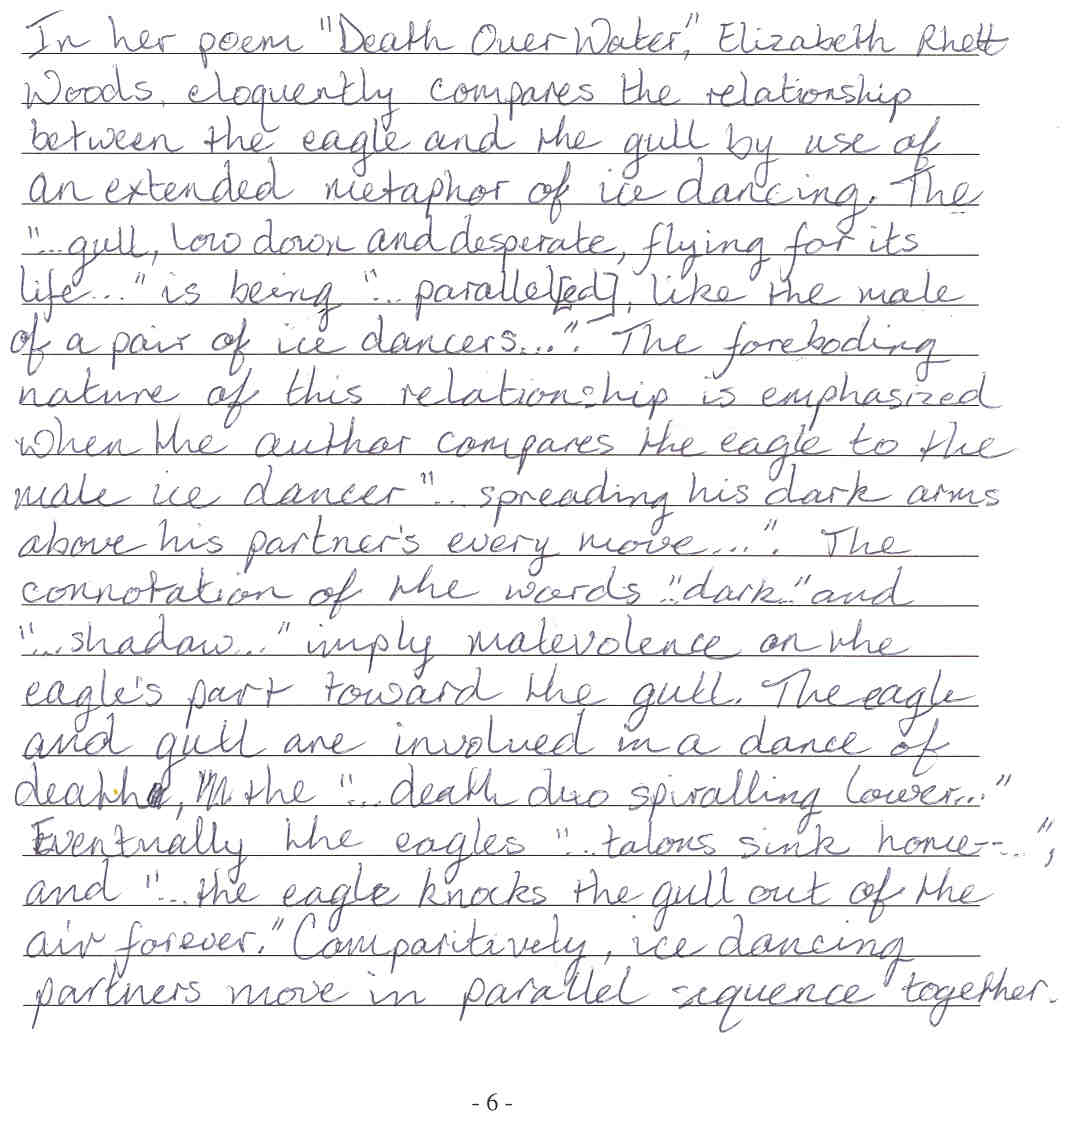 In her poem "Death Over Water", Elizabeth Rhett
Woods, eloquently compares the relationship
between the eagle and the gull by use of
an extended metaphor of ice dancing. The
"...gull, low down and desperate, flying for its
life..." is being "...parallel[ed], like the male
of a pair of ice dancers...". The foreboding
nature of this relationship is emphasized
when the author compares the eagle to the
male ice dancer "... spreading his dark arms
above his partner's every move...". The
connotation of the words "..dark.." and
"...shadow..." imply malevolence on the
eagle's part toward the gull. The eagle
and gull are involved in a dance of
death, the "...death duo spiralling lower..."
Eventually the eagles "...talons sink home--...",
and "...the eagle knocks the gull out of the
air forever." Comparitively, ice dancing
partners move in parallel sequence together.
- 6 -